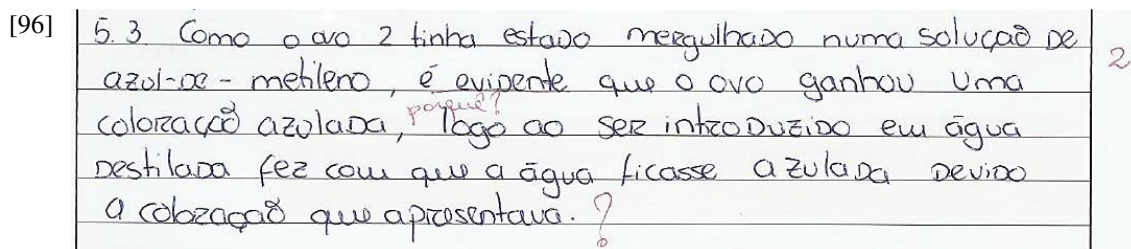 [96]
5.3. Como o ovo 2 tinha estado mergulhado numa solução de 2
azul-de-metileno, é evidente que o ovo ganhou uma
porquê?
coloração azulada, logo ao ser introduzido em água
destilada fez com que a água ficasse azulada devido
a coloração que apresentava. ?